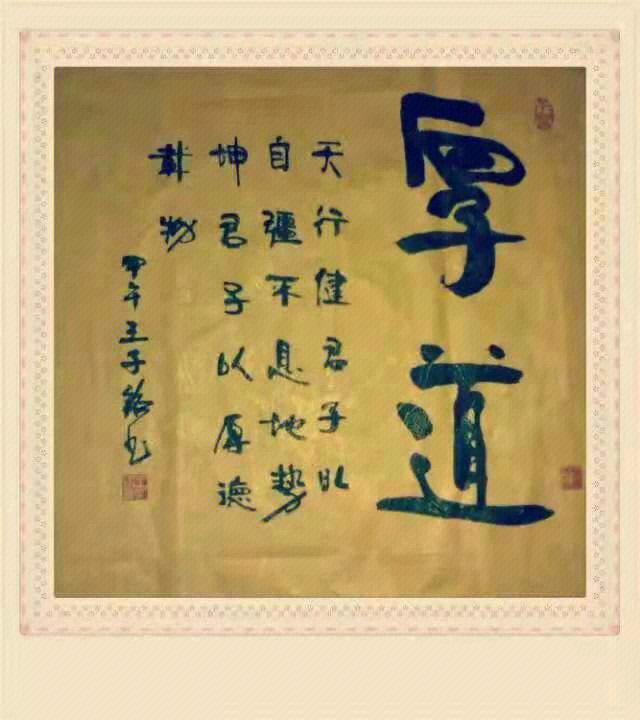 厚道
天行健君子以
自彊不息地势
坤君子以厚德
载物
甲午王子铭书